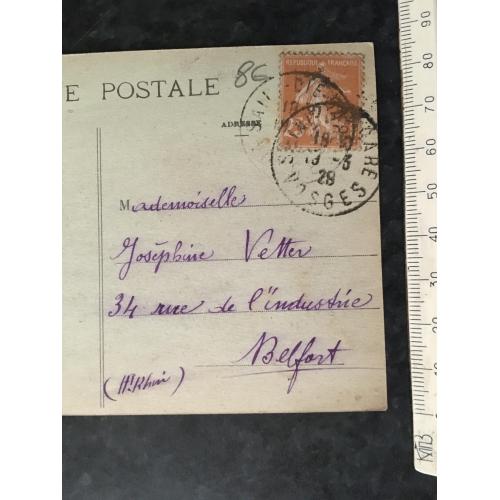 E POSTALE
86
ADRESSE
REPUBLIQUE FRANÇAISE
GARE
18
19 -3
28
VOSGES
Mademoiselle
Joséphine Vetter
34 rue de l'industrie
Belfort
(Ht Rhin)
90
80
70
60
50
40
30
20
10